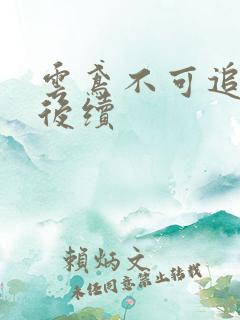 雲鸢不可追
後續
賴炳文
未經同意禁止轉載